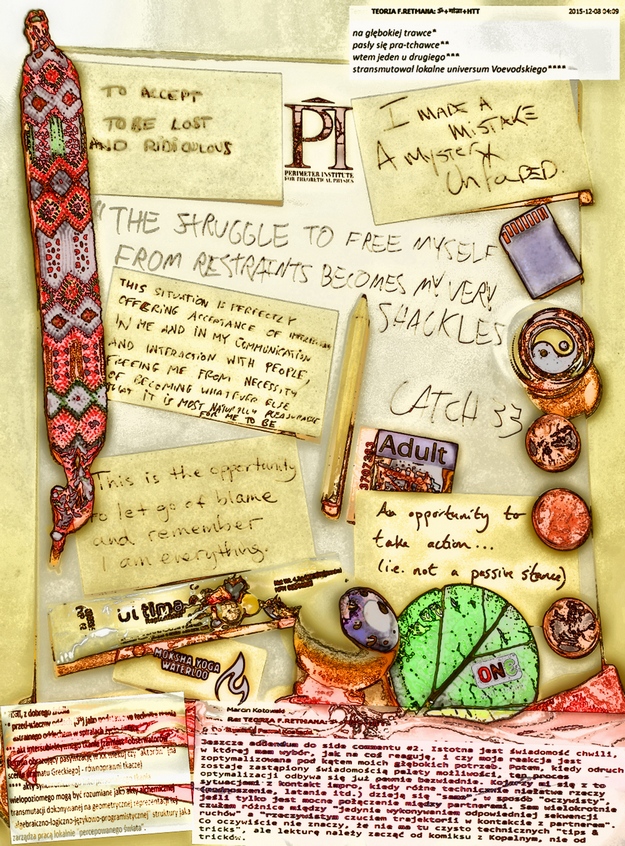 TEORIA F.RETMANA: +HTT
2015-12-08 04:09
na głębokiej trawce*
pasły się pra-tchawce**
wtem jeden u drugiego***
stransmutował lokalne universum Voevodskiego****
TO ACCEPT
TO BE LOST
AND RIDICULOUS
PI
PERIMETER INSTITUTE
FOR THEORETICAL PHYSICS
I MADE A
MISTAKE
A MYSTERY
UNFOLDED.
"THE STRUGGLE TO FREE MYSELF
FROM RESTRAINTS BECOMES MY VERY
SHACKLES
THIS SITUATION IS PERFECTLY
OFFERING ACCEPTANCE OF
IN ME AND IN MY COMMUNICATION
AND INTERACTION WITH PEOPLE,
FREEING ME FROM NECESSITY
OF BECOMING WHATEVER ELSE
IT IS MOST NATURALLY PLEASURABLE
FOR ME TO BE
CATCH 33
Adult
This is the opportunity
to let go of blame
and remember
I am everything.
An opportunity to
take action...
(i.e. not a passive stance)
ultima
MOKSHA YOGA
WATERLOO
ON
Marcin Kotowski
Re: TEORIA F.RETMANA:
Jeszcze do side commentu #2. Istotna jest świadomość chwili,
w której jest wybór, jak na coś reaguję, i czy moja reakcja jest
zoptymalizowana pod kątem moich głębokich potrzeb. Potem, kiedy odruch
zostaje zastąpiony świadomością palety możliwości, sam proces
optymalizacji odbywa się już pewnie bezwiednie. Kojarzy mi się z tym
sytuacja i kontakt impro, kiedy różne "techniczne" kwestie (łączy
itd.) dzieją się "same" w sposób "oczywisty",
jeśli tylko jest mocne połączenie między partnerami - wielokrotnie
czułem różnicę między "jedynie wykonywaniem odpowiedniej sekwencji
ruchów" a "rzeczywistym czuciem trajektorii w kontakcie z partnerem".
Co oczywiście nie znaczy, że nie ma tu czysto technicznych "tips &
tricks", ale lekturę należy zacząć od komiksu z Kopalnym, nie od
tricków.
wielopoziomego mogą być rozumiane jako akty alchemicznej
transmutacji dokonywanej na geometrycznej reprezentacji
algebraiczno-logiczno-językowo-programistycznej struktury jaką
zarządza pracą lokalnie "percepowanego świata".